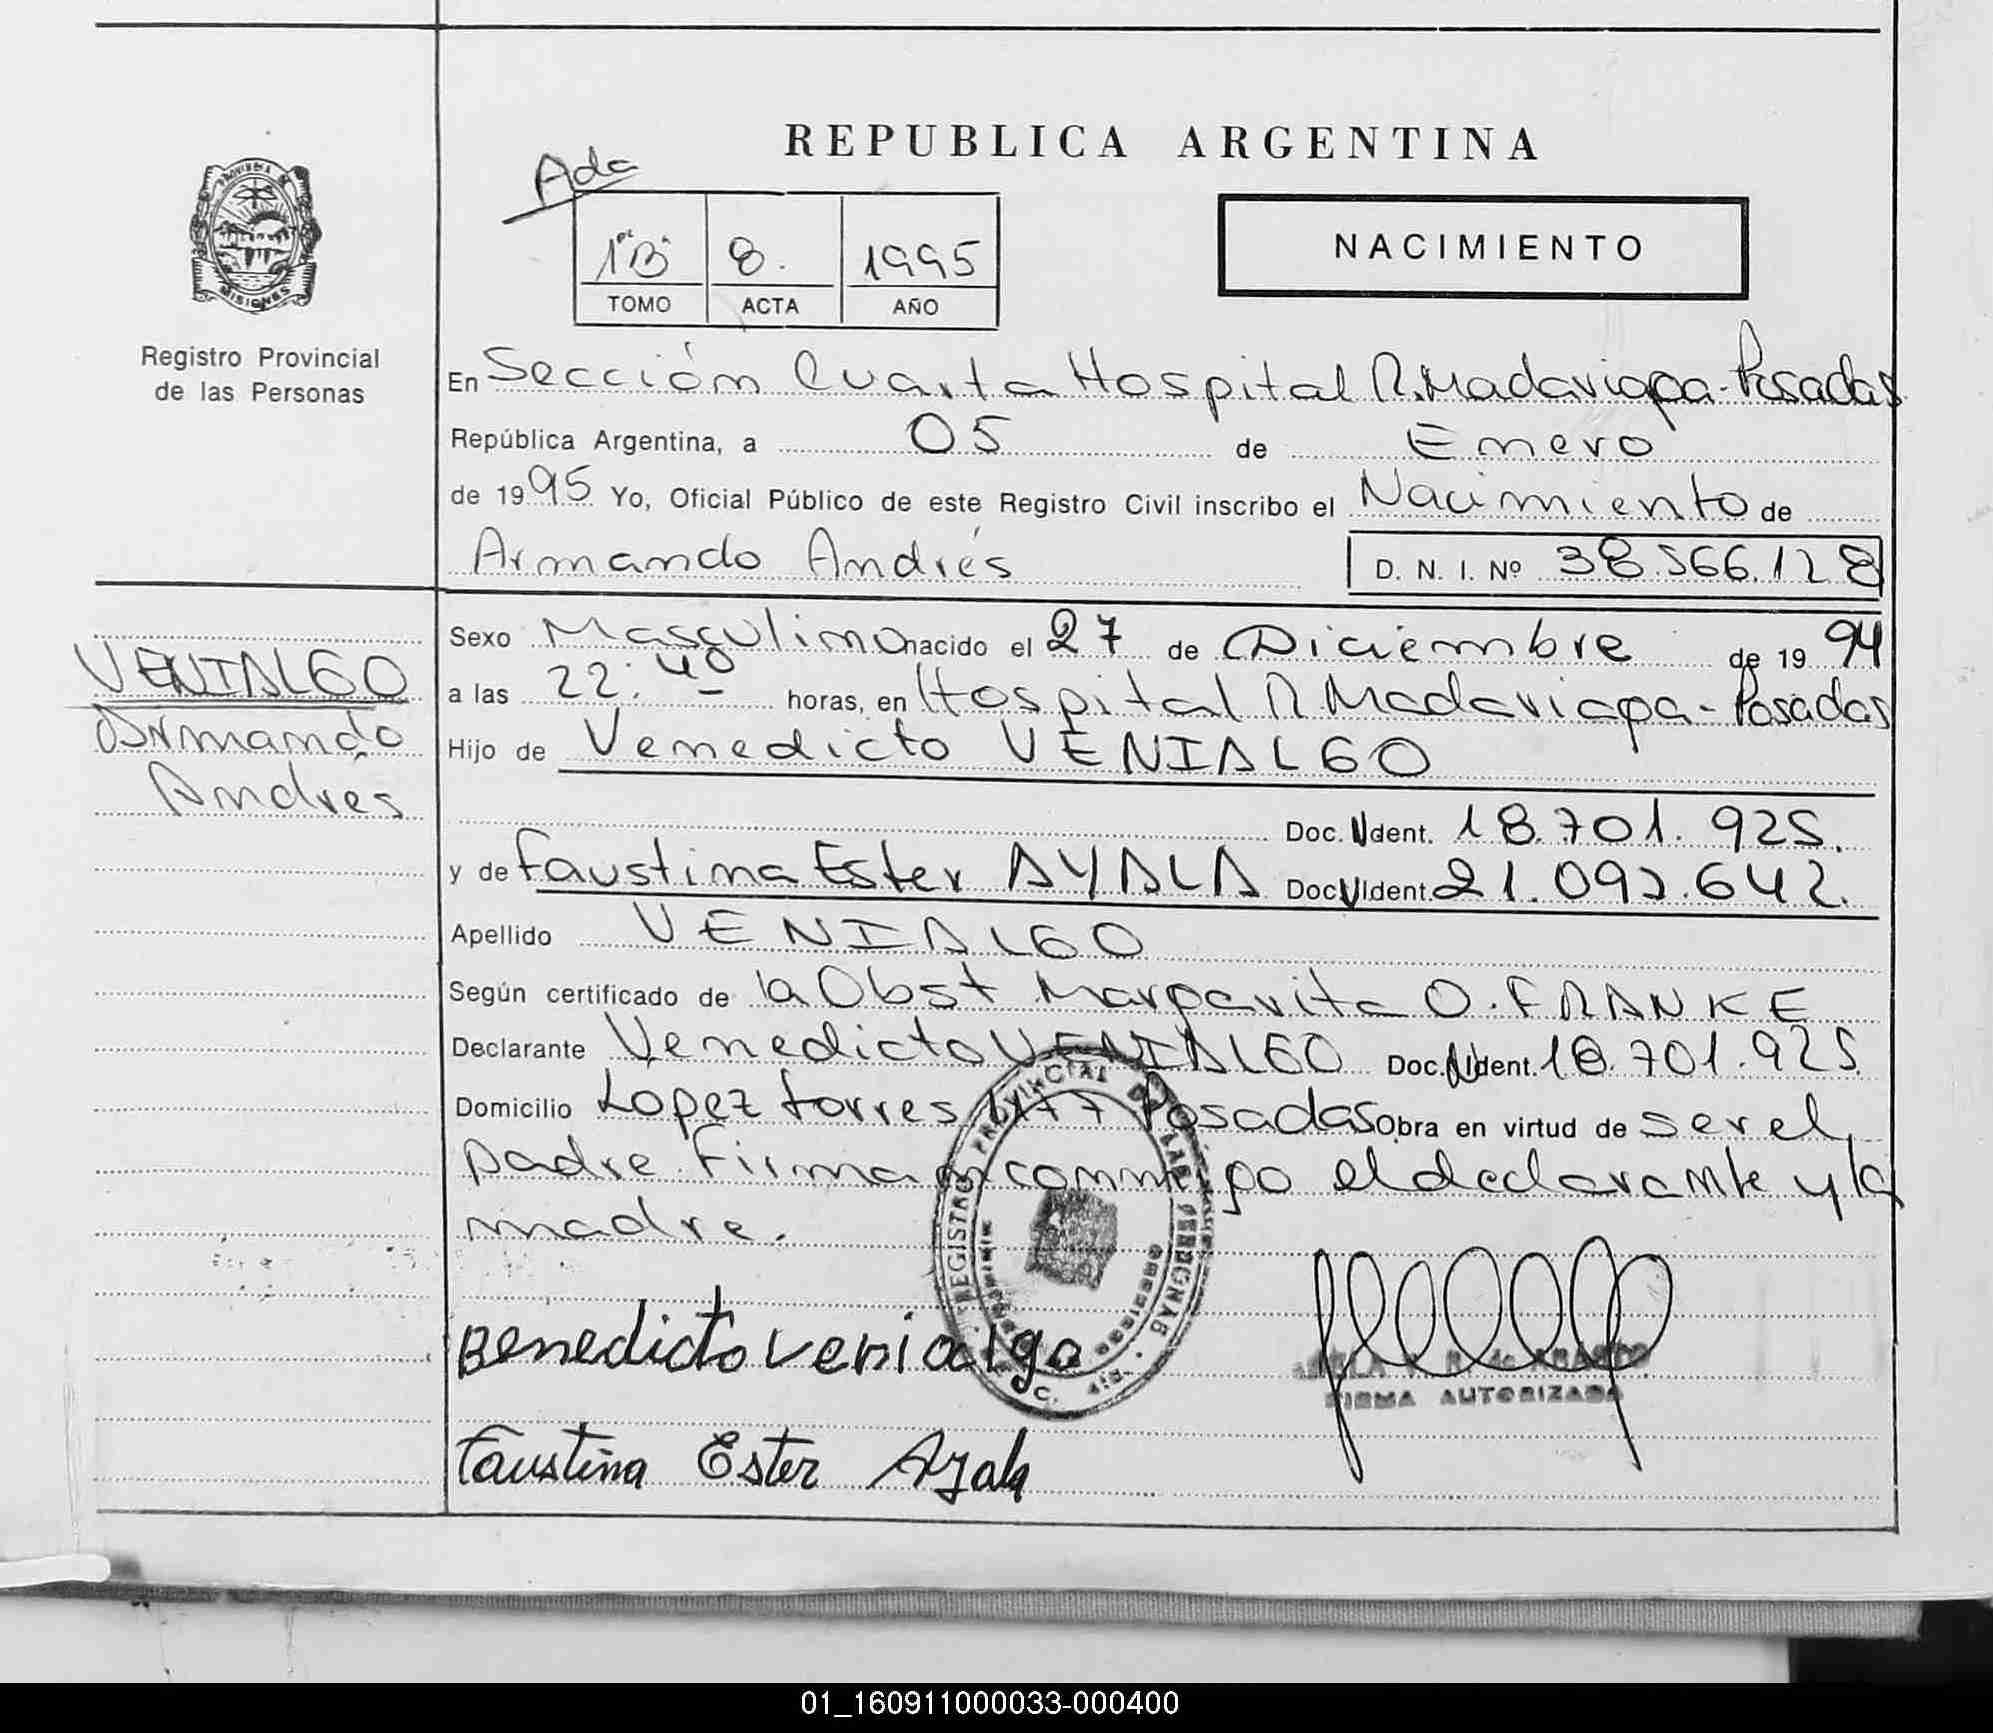 REPUBLICA ARGENTINA
Ada
1º "B" 8. 1995
TOMO ACTA AÑO
NACIMIENTO
PROVINCIA DE
MISIONES
Registro Provincial
de las Personas
En Sección Cuarta Hospital R. Madariaga - Posadas
República Argentina, a 05 de Enero
de 1995 Yo, Oficial Público de este Registro Civil inscribo el Nacimiento de
Armando Andrés D. N. I. Nº 38.566.128
VENIALGO
Armando
Andrés
Sexo Masculino nacido el 27 de Diciembre de 1994
a las 22:40 horas, en Hospital R. Madariaga - Posadas
Hijo de Venedicto VENIALGO
Doc. Ident. 18.701.925.
y de Faustina Ester AYALA Doc. Ident. 21.092.642.
Apellido VENIALGO
Según certificado de la Obst Margarita O. FRANKE
Declarante Venedicto VENIALGO Doc. Ident. 18.701.925
Domicilio Lopez torres Posadas Obra en virtud de ser el
padre. Firman conmigo el declarante y la
madre.
REGISTRO PROVINCIAL DE LAS PERSONAS
Benedicto venialgo
FIRMA AUTORIZADA
Faustina Ester Ayala
01_160911000033-000400